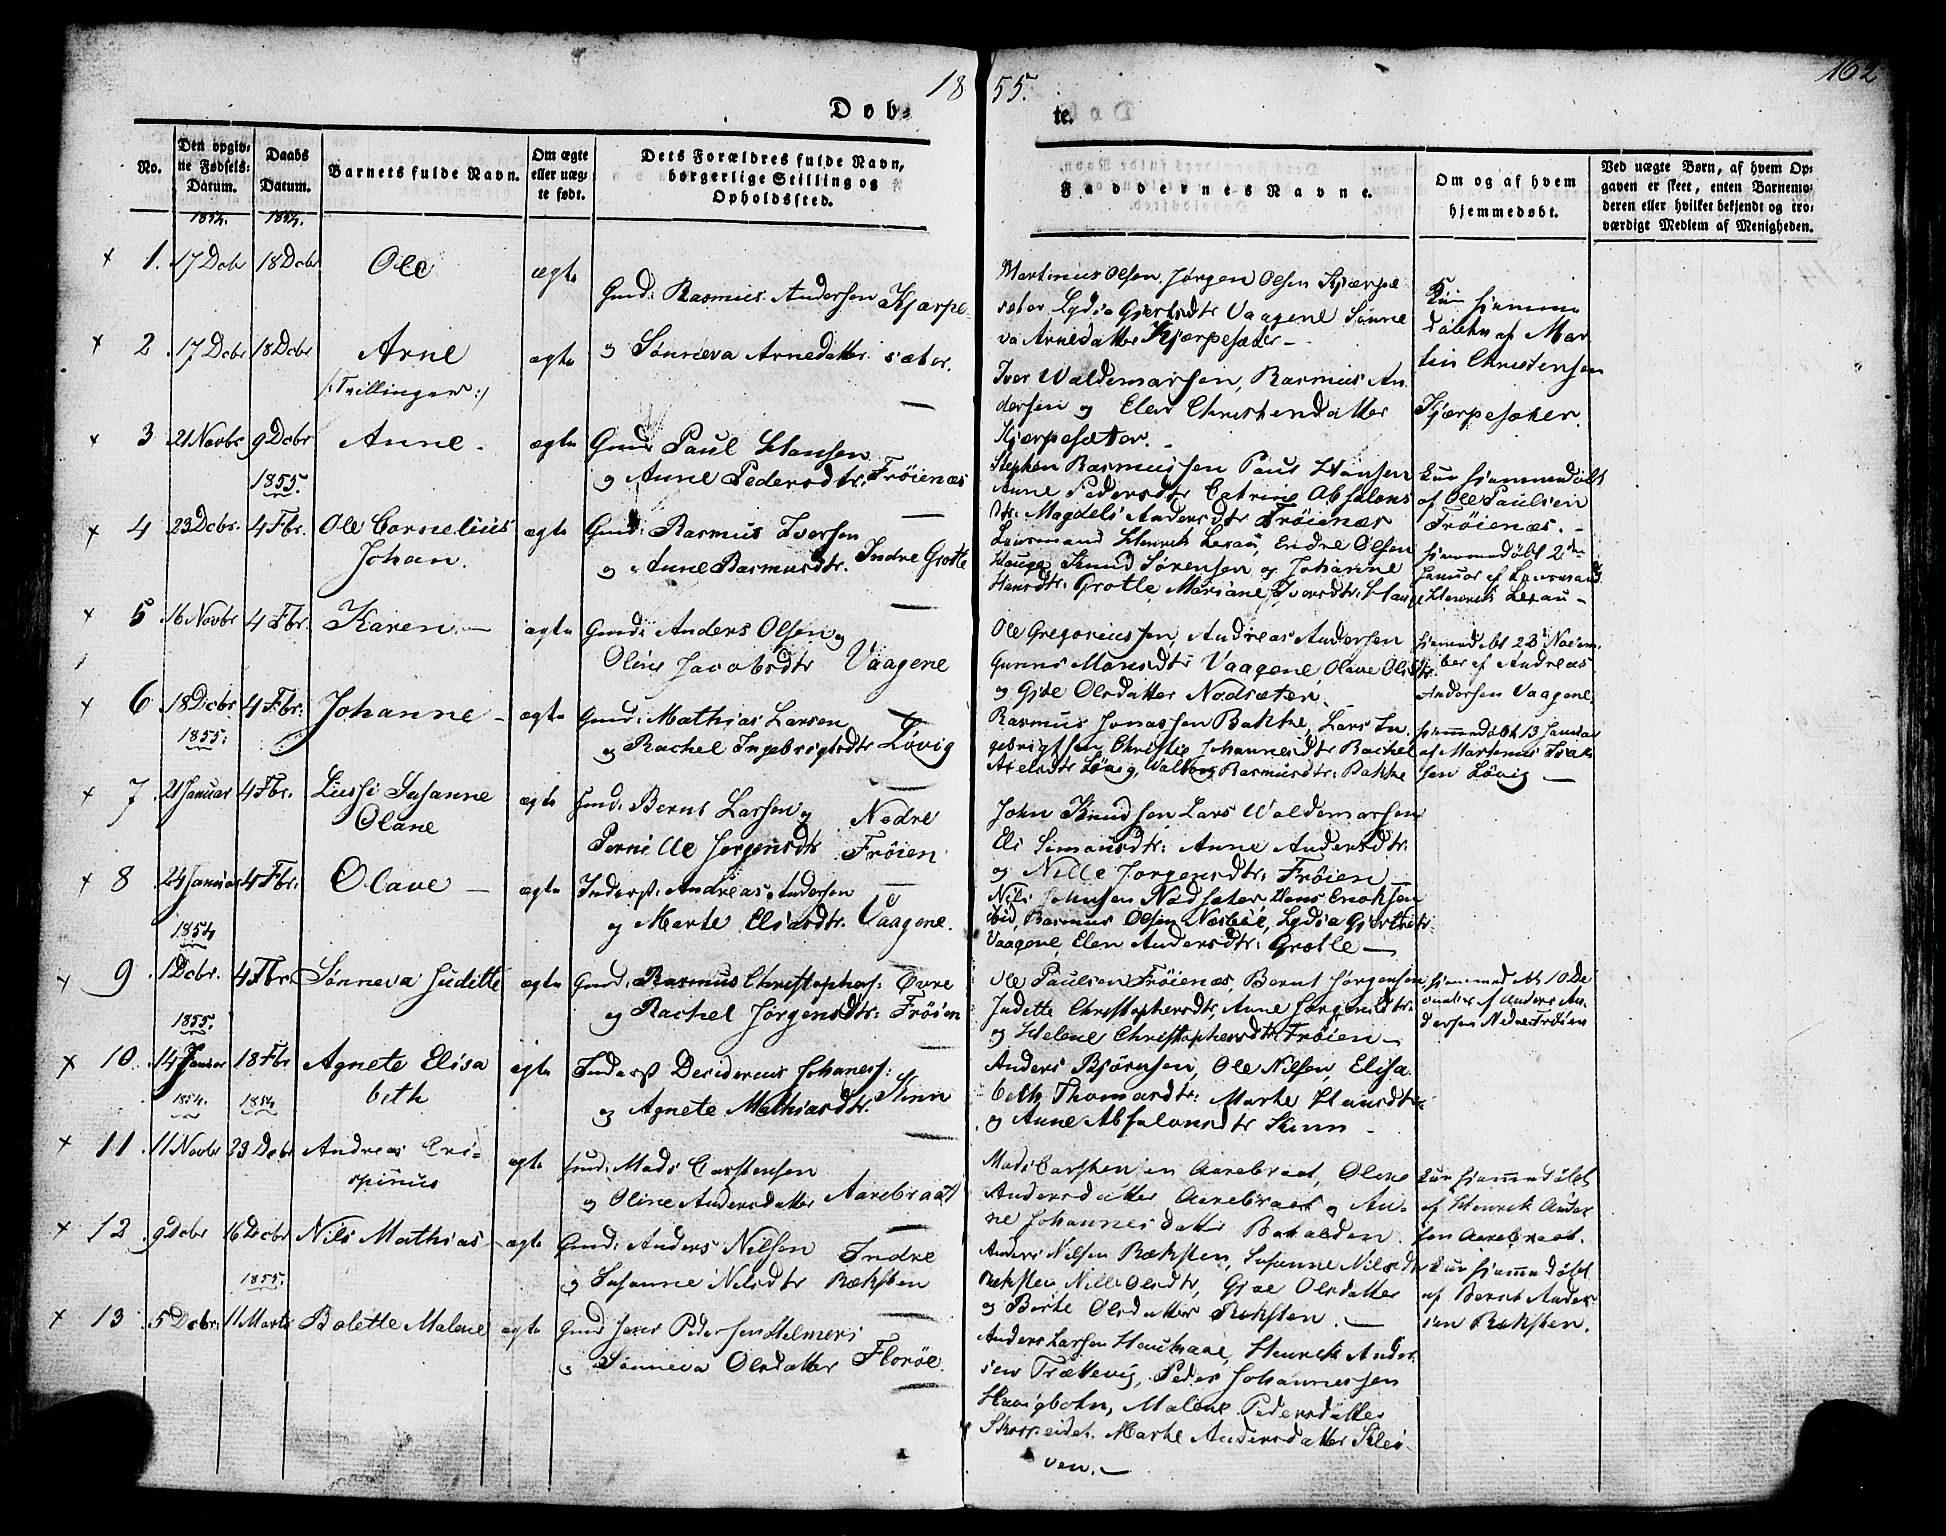 18 55.
162
Døb-
te.
No.
Den opgiv-
ne Fødsels-
Datum.
Daabs
Datum.
Barnets fulde Navn.
Om ægte
eller uæg-
te født.
Dets Forældres fulde Navn,
borgerlige Stilling og
Opholdssted.
Faddernes Navne.
Om og af hvem
hjemmedøbt.
Ved uægte Børn, af hvem Op-
gaven er skeet, enten Barnemo-
deren eller hvilket bekjendt og tro-
værdigt Medlem af Menigheden.
1854. 1854.
× 1. 17 Dcbr 18 Dcbr Ole ægte
Gmd: Rasmus Andersen Kjærpe-
Martinus Olsen, Jørgen Olsen Kjærpe
sæter Lydia Giertsdtr Vaagene Sønne
va Arnedatter Kjærpesæter –
Kun hjemme
døbte af Mar
tin Christensen
Kjærpesæter.
× 2 17 Dcbr 18 Dcbr Arne ægte
/:Tvillinger:/
og Sønneva Arnedatter sæter.
Iver Waldemarsen, Rasmus An
dersen og Elen Christensdatter
Kjærpesæter. –
× 3 21 Novbr 9 Dcbr Anne – ægte
Gmd: Paul Hansen
og Anne Pedersdtr. Frøienæs
Stephen Rasmussen Paul Hansen
Anne Pedersdtr Catrine Absalons
dtr. Magdeli Andersdtr Frøienæs
Kun hjemmedøbt
af Ole Paulsen
Frøienæs. –
1855.
× 4 23 Dcbr. 4 Fbr. Ole Cornelius
Johan. ægte
Gmd: Rasmus Iversen
og Anne Rasmusdtr. Indre Grotle
Lensmand Henrik Lexau, Endre Olsen
Hauge Knud Sørensen og Johanne
Hansdtr: Grotle, Mariane Iversdtr: Hauge
hjemmedøbt 2den
Januar af Lensmand
Henrik Lexau –
× 5 16 Novbr 4 Fbr. Karen. – ægte
Gmd: Anders Olsen og
Oline Jacobsdtr Vaagene
Ole Gregoriussen, Andreas Andersen
Gunne Monsdtr Vaagene, Olave Olsdtr.
og Gjøe Olsdatter Nodsæter –
hjemmedøbt 23 Novem-
ber af Andreas
Andersen Vaagene.
× 6 18 Dcbr. 4 Fbr: Johanne – ægte
Gmd: Mathias Larsen
og Rachel Ingebrigtsdtr Løvig
Rasmus Jonassen Bakke, Lars In-
gebrigtsen Christie Johannesdtr Rachel
Axelsdtr Løvig, Walborg Rasmusdtr: Bakke
hjemmedøbt 13 Januar
af Martinus Isak
sen Løvig –
1855.
× 7 21 Januar 4 Fbr. Liussi Susanne
Olane ægte
Gmd: Bernt Larsen og Nedre
Pernille Jørgensdtr Frøien
John Knudsen Lars Waldemarsen
Eli Simonsdtr: Anne Andersdtr:
og Nille Jørgensdtr: Frøien –
× 8 24 Januar 4 Fbr: Olave – ægte
Inderst: Andreas Andersen
og Marte Eliasdtr. Vaagene.
Nils Johnsen Nodsæter Hans Enoksen
ibid, Rasmus Olsen Næsbøe, Lydia Giertsdtr.
Vaagene, Elen Andersdtr: Grotle –
1854
× 9 1 Dcbr. 4 Fbr. Sønneva Juditte ægte
Gmd: Rasmus Christophers: Øvre
og Rachel Jørgensdtr: Frøien
Ole Paulsen Frøienæs, Bernt Jørgensen
Judette Christophersdtr, Anne Jørgensdtr:
og Helene Christophersdtr Frøien –
hjemmedøbt 10 De
cember af Anders An-
dersen Nedre Frøien
1855.
× 10 14 Januar 18 Fbr Agnete Elisa
beth ægte
Inderst Desidereus Johaness:
og Agnete Mathiasdtr. Kinn
Anders Bjørnsen, Ole Nilsen, Elisa-
beth Thomasdtr: Marte Hansdtr:
og Anne Absalonsdtr Kinn –
1854. 1854
× 11 11 Novbr 23 Dcbr Andreas Cri-
spinus ægte
Gmd: Mads Carstensen
og Oline Andersdatter Aarebraat
Mads Carstensen Aarebraat, Oline
Andersdatter Aarebraat og An-
ne Johannesdatter Batalden.
Kun hjemmedøbt
af Henrik Ander
sen Aarebraat.
× 12 9 Dcbr 16 Dcbr Nils Mathias – ægte
Gmd: Anders Nilsen Indre
og Susanne Nilsdtr Ræksten
Anders Nilsen Ræksten, Susanne Nilsdtr
Ræksten, Nille Olsdtr, Gjøe Olsdatter
og Berte Olsdatter Ræksten. –
Kun hjemmedøbt
af Bernt Ander
sen Ræksten.
1855.
× 13 5 Dcbr. 11 Marts Bolette Malene ægte
Gmd Jens Pedersen Helmers
og Sønneva Olsdatter Florøe.
Anders Larsen Houkaae, Henrik Ander
sen Trættevig, Peder Johannessen
Havigbotn, Malene Pedersdatter
Skorpeidet. Marte Andersdatter Klei
ven. –